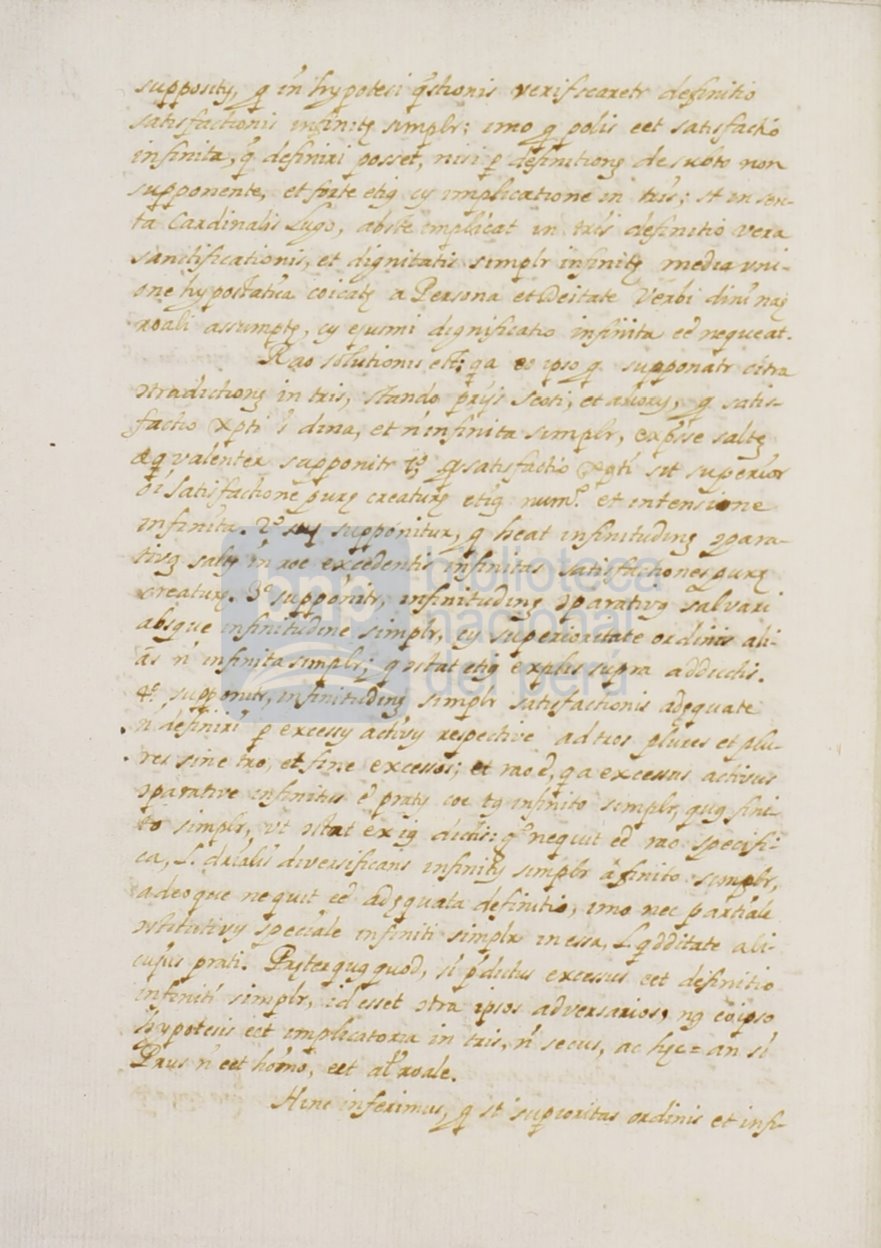 supposity, q in hypotesi q̃stionis verificaretr definitio
satisfactionis infinitę simplr; imo q̃ polis eet satisfactio
infinita, q̃ definiri posset, nisi p definitionę de subto non
supponente, et forte etiq cy implicatione in tris; st in sen-
ta Cardinalis Lugo, abste implicat in tris definitio vera
sanctificationis, et dignitatis simplr infinitę media vni-
one hypostatica coicatę a Persona et Deitate Verbi divi naę
roali assumptę, cy ejusmi dignificatio infiñita eē nequeat.
Rao solutionis est; qa eo ipso q supponatr citra
ɔtradictionę in tris, stando prijs Scoti, et aliory, q satis-
factio Xpti i dina, et n̄ infinita simplr, expsse saltę
æqvalenter supponitr 1º q satisfactio Xpti sit superior
oi satisfactione purę creaturę etiq numº et intensione
infinita. 2º supponitur, q heat infinitudinę ɔpara-
tivq saltę in roe excedentis infinitas satisfactiones purę
creaturę. 3º supponitr, infinitudinę ɔparativq salvari
absque infinitudine simplr, cy superioritate ordinis ali-
ās n̄ infinita simplr; q ɔstat etiq explis supra adductis.
4º supponitr, infinitudinę simplr satisfactionis adęquate
n̄ definiri p excessy activy respective ad tios plures et plu-
res sine tro, et fine excessos; et rao ē, qa excessus activus
ɔparative infinitus ē praty coe tq infinito simplr, quq fini-
to simplr, vt ɔstat ex iq dictis: gº nequit eē rao specifi-
ca, l. drialis diversificans infinity simplr a finito simplr,
adeoque nequit eē adęquata definitio, imo nec partiale
ɔstitutivy speciale infiniti simplr in essa, l. qdditate ali-
cujus prati. Pręterquq quod, si pdictus excessus eet definitio
infiniti simplr, id esset ɔtra ipsos adversarios, nq eo ipso
hypotesis eet implicatoria in tris, n̄ secus, ac hęc = an si
Prus n̄ eet homo, eet al' roale.
Hinc inferimus, q st superioritas ordinis et infi-